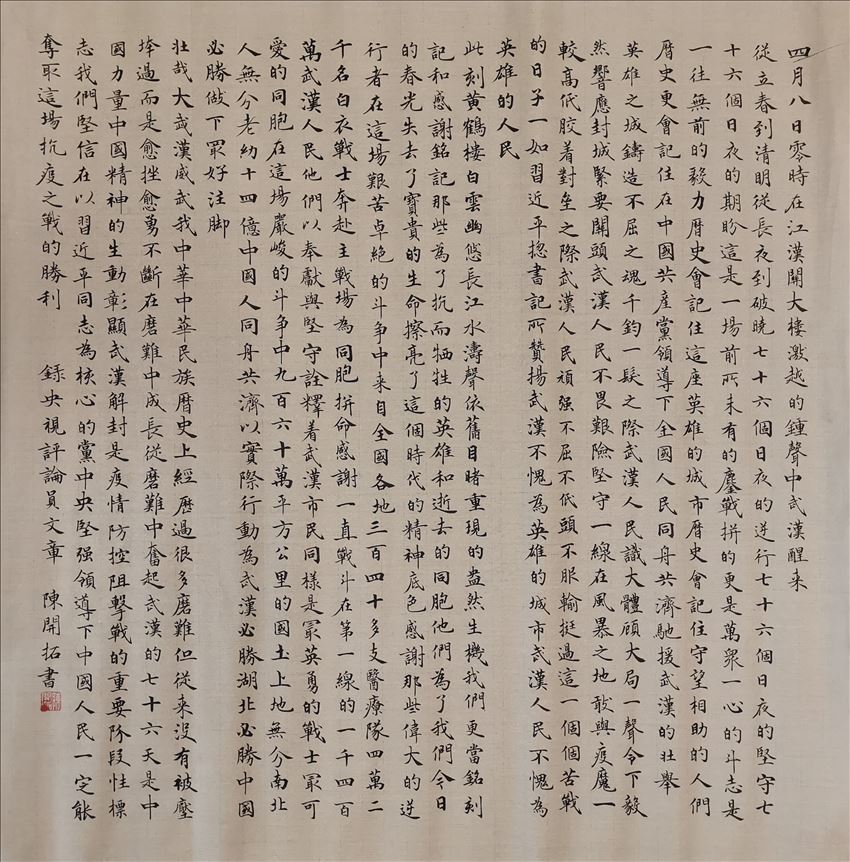 四月八日零時在江漢關大樓激越的鍾聲中武漢醒来
從立春到清明從長夜到破曉七十六個日夜的逆行七十六個日夜的堅守七
十六個日夜的期盼這是一場前所未有的鏖戰拼的更是萬眾一心的斗志是
一往無前的毅力曆史會記住這座英雄的城市曆史會記住守望相助的人們
曆史更會記住在中國共産黨領導下全國人民同舟共濟馳援武漢的壯舉
英雄之城鑄造不屈之魂千鈞一髮之際武漢人民識大體顧大局一聲令下毅
然響應封城緊要關頭武漢人民不畏艱險堅守一線在風暴之地敢與疫魔一
較高低胶着對垒之際武漢人民頑强不屈不低頭不服輸挺過這一個個苦戰
的日子一如習近平揔書記所贊揚武漢不愧為英雄的城市武漢人民不愧為
英雄的人民
此刻黄鶴樓白雲幽悠長江水濤聲依舊目睹重現的盎然生機我們更當銘刻
記和感謝銘記那些為了抗而牺牲的英雄和逝去的同胞他們為了我們今日
的春光失去了寶貴的生命擦亮了這個時代的精神底色感謝那些偉大的逆
行者在這場艱苦卓絶的斗争中来自全國各地三百四十多支醫療隊四萬二
千名白衣戰士奔赴主戰場為同胞拼命感謝一直戰斗在第一線的一千四百
萬武漢人民他們以奉獻與堅守詮釋着武漢市民同樣是冣英勇的戰士冣可
愛的同胞在這場嚴峻的斗争中九百六十萬平方公里的國土上地無分南北
人無分老幼十四億中國人同舟共濟以實際行動為武漢必勝湖北必勝中國
必勝做下冣好注脚
壯哉大武漢威武我中華中華民族曆史上經歷過很多磨難但從来没有被壓
垮過而是愈挫愈勇不斷在磨難中成長從磨難中奮起武漢的七十六天是中
國力量中國精神的生動彰顯武漢解封是疫情防控阻擊戰的重要阶段性標
志我們堅信在以習近平同志為核心的黨中央堅强領導下中國人民一定能
奪取這場抗疫之戰的勝利 録央視評論員文章 陳開拓書